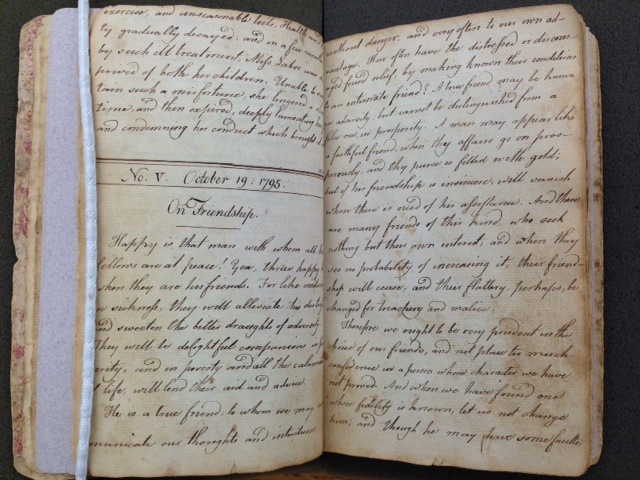 exercise, and unseasonable toils. Health and
ty gradually decayed: and in a few months
by such ill treatment, Miss Zabet was
prived of both her children. Unable to
tain such a misfortune, she lingered a
time, and then expired, deeply lamenting her
and condemning her conduct which brought it
No. V. October 19: 1795.
On Friendship.
Happy is that man with whom all h
fellows are at peace! Yea, thrice happy
when they are his friends. For like
in sickness, they will alleviate his
and sweeten the bitter draughts of adversity
They will be delightful companions in
erity, and in poverty and all the calami
f life, will lend their aid and advice.
He is a true friend to whom we may
municate our thoughts and intentions
without danger, and very often to our own ad-
vantage. How often have the distressed or discour-
aged found relief, by making known their conditions
to an intimate friend? A true friend may be known
in adversity, but cannot be distinguished from a
false one, in prosperity. A man may appear like
a faithful friend, when they affairs go on pros-
perously, and thy purse is filled with gold;
but if his friendship is insincere, will vanish
when there is need of his assistance. And there
are many friends of this kind, who seek
nothing but their own interest, and when they
see no probability of increasing it, their friend-
ship will cease, and their flattery, perhaps, be
changed for treachery and malice.
Therefore we ought to be very prudent in the
choice of our friends, and not place too much
confidence in a person whose character we have
not proved. And when we have found one
whose fidelity is known, let us not change
him; and though he may have some faults